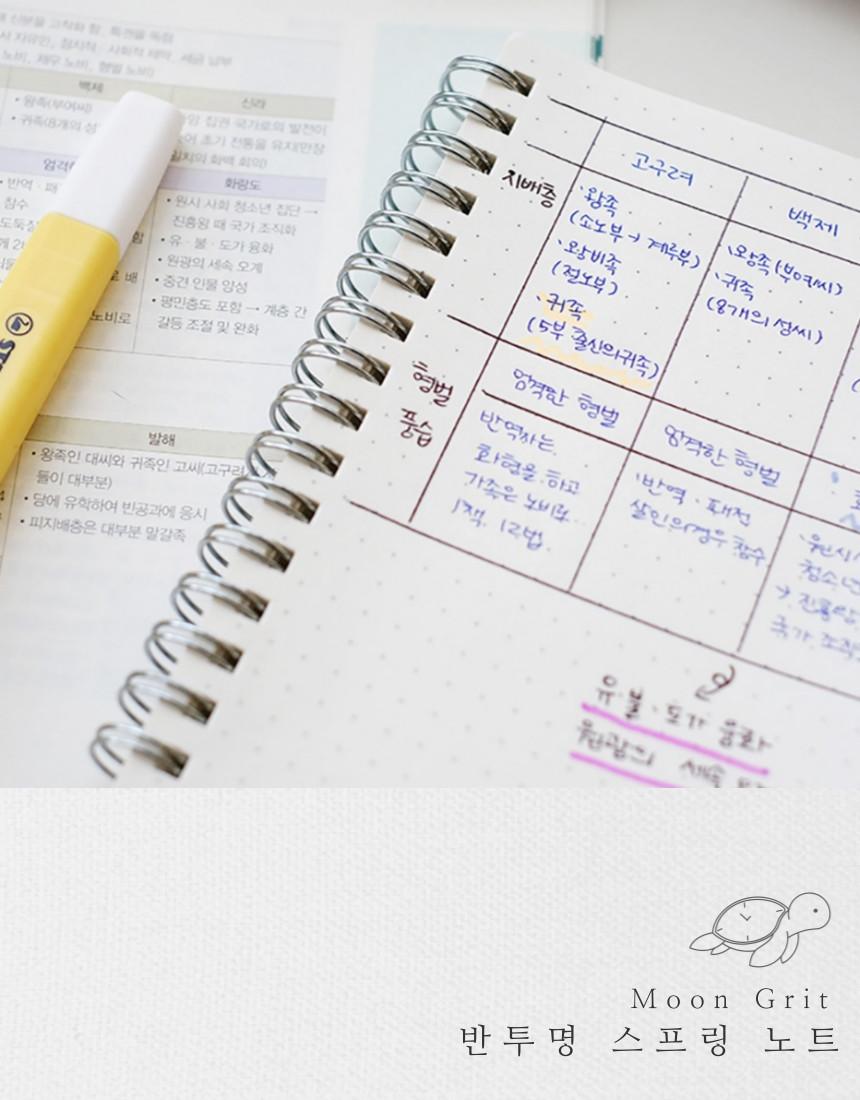 신분을 고착화 함, 특권을 독점
서 자유민, 정치적·사회적 제약, 세금 납부
노비, 채무 노비, 형벌 노비)
백제
신라
• 왕족(부여씨)
• 귀족(8개의 성
앙 집권 국가로의 발전이
늦어 초기 전통을 유지(만장
일치의 화백 회의)
엄격
화랑도
• 반역·패
참수
도둑질
• 원시 사회 청소년 집단 →
진흥왕 때 국가 조직화
• 유·불·도가 융화
• 원광의 세속 오계
• 중간 인물 양성
• 평민층도 포함 → 계층 간
갈등 조절 및 완화
함
로 배
노비로
발해
• 왕족인 대씨와 귀족인 고씨(고구려
들이 대부분)
• 당에 유학하여 빈공과에 응시
• 피지배층은 대부분 말갈족
고구려
백제
지배층
·왕족
(소노부→계루부)
·왕비족
(절노부)
·귀족
(5부 출신의 귀족)
·왕족(부여씨)
·귀족
(8개의 성씨)
형벌
풍습
엄격한 형벌
엄격한 형벌
반역자는
화형을 하고
가족은 노비로
1책. 12법.
·반역·패전
살인의 경우 참수
·원시
청소년
→ 진흥왕
국가 조직
유·불·도가 융화
원광의 세속
Moon Grit
반투명 스프링 노트